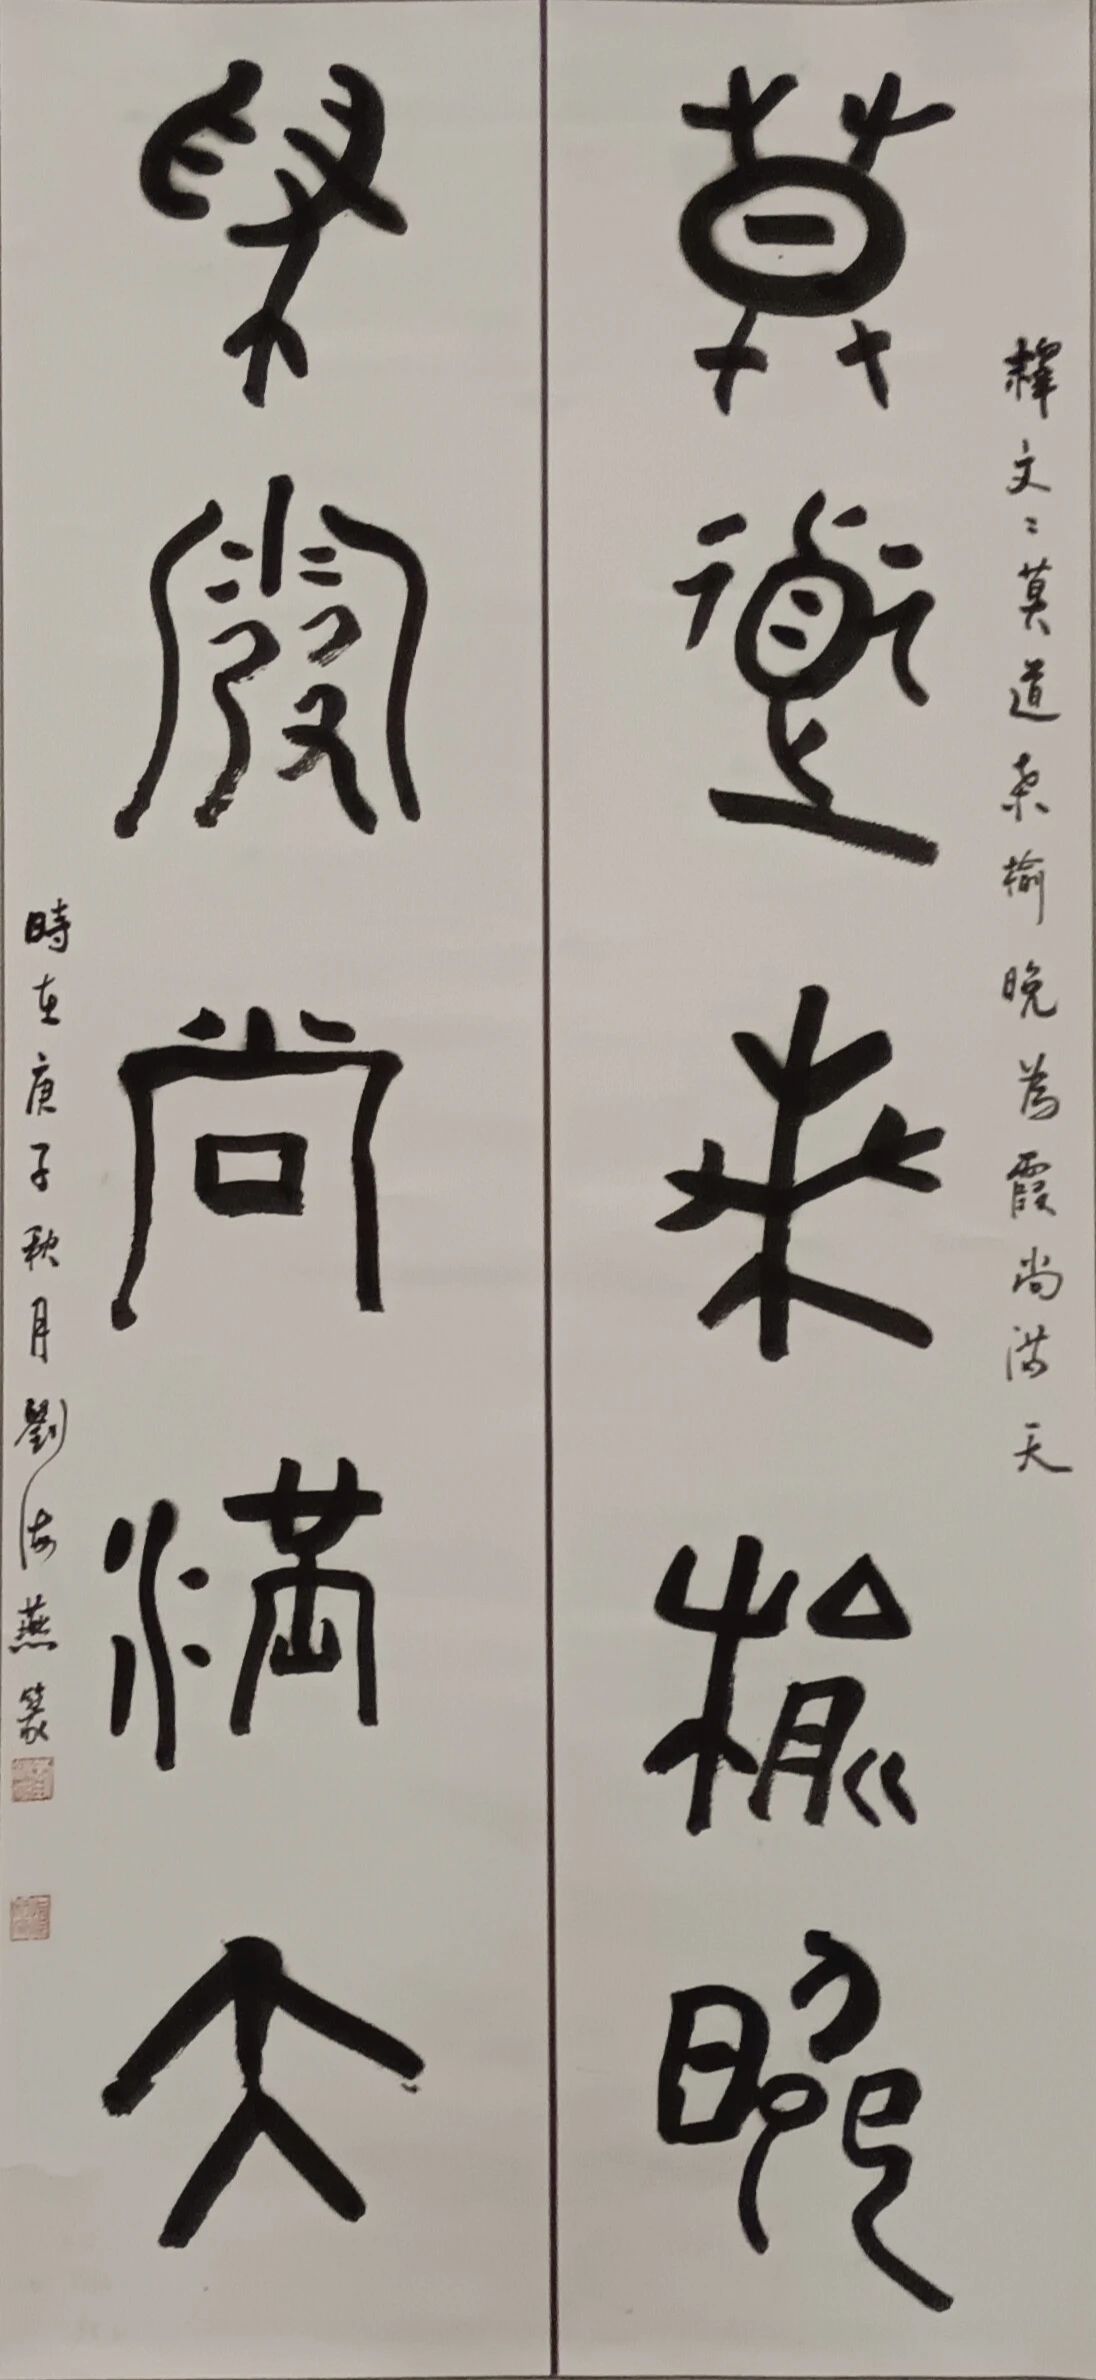 釋文：莫道桑榆晚為霞尚滿天
莫道桑榆晚
為霞尚滿天
時在庚子秋月劉海燕篆